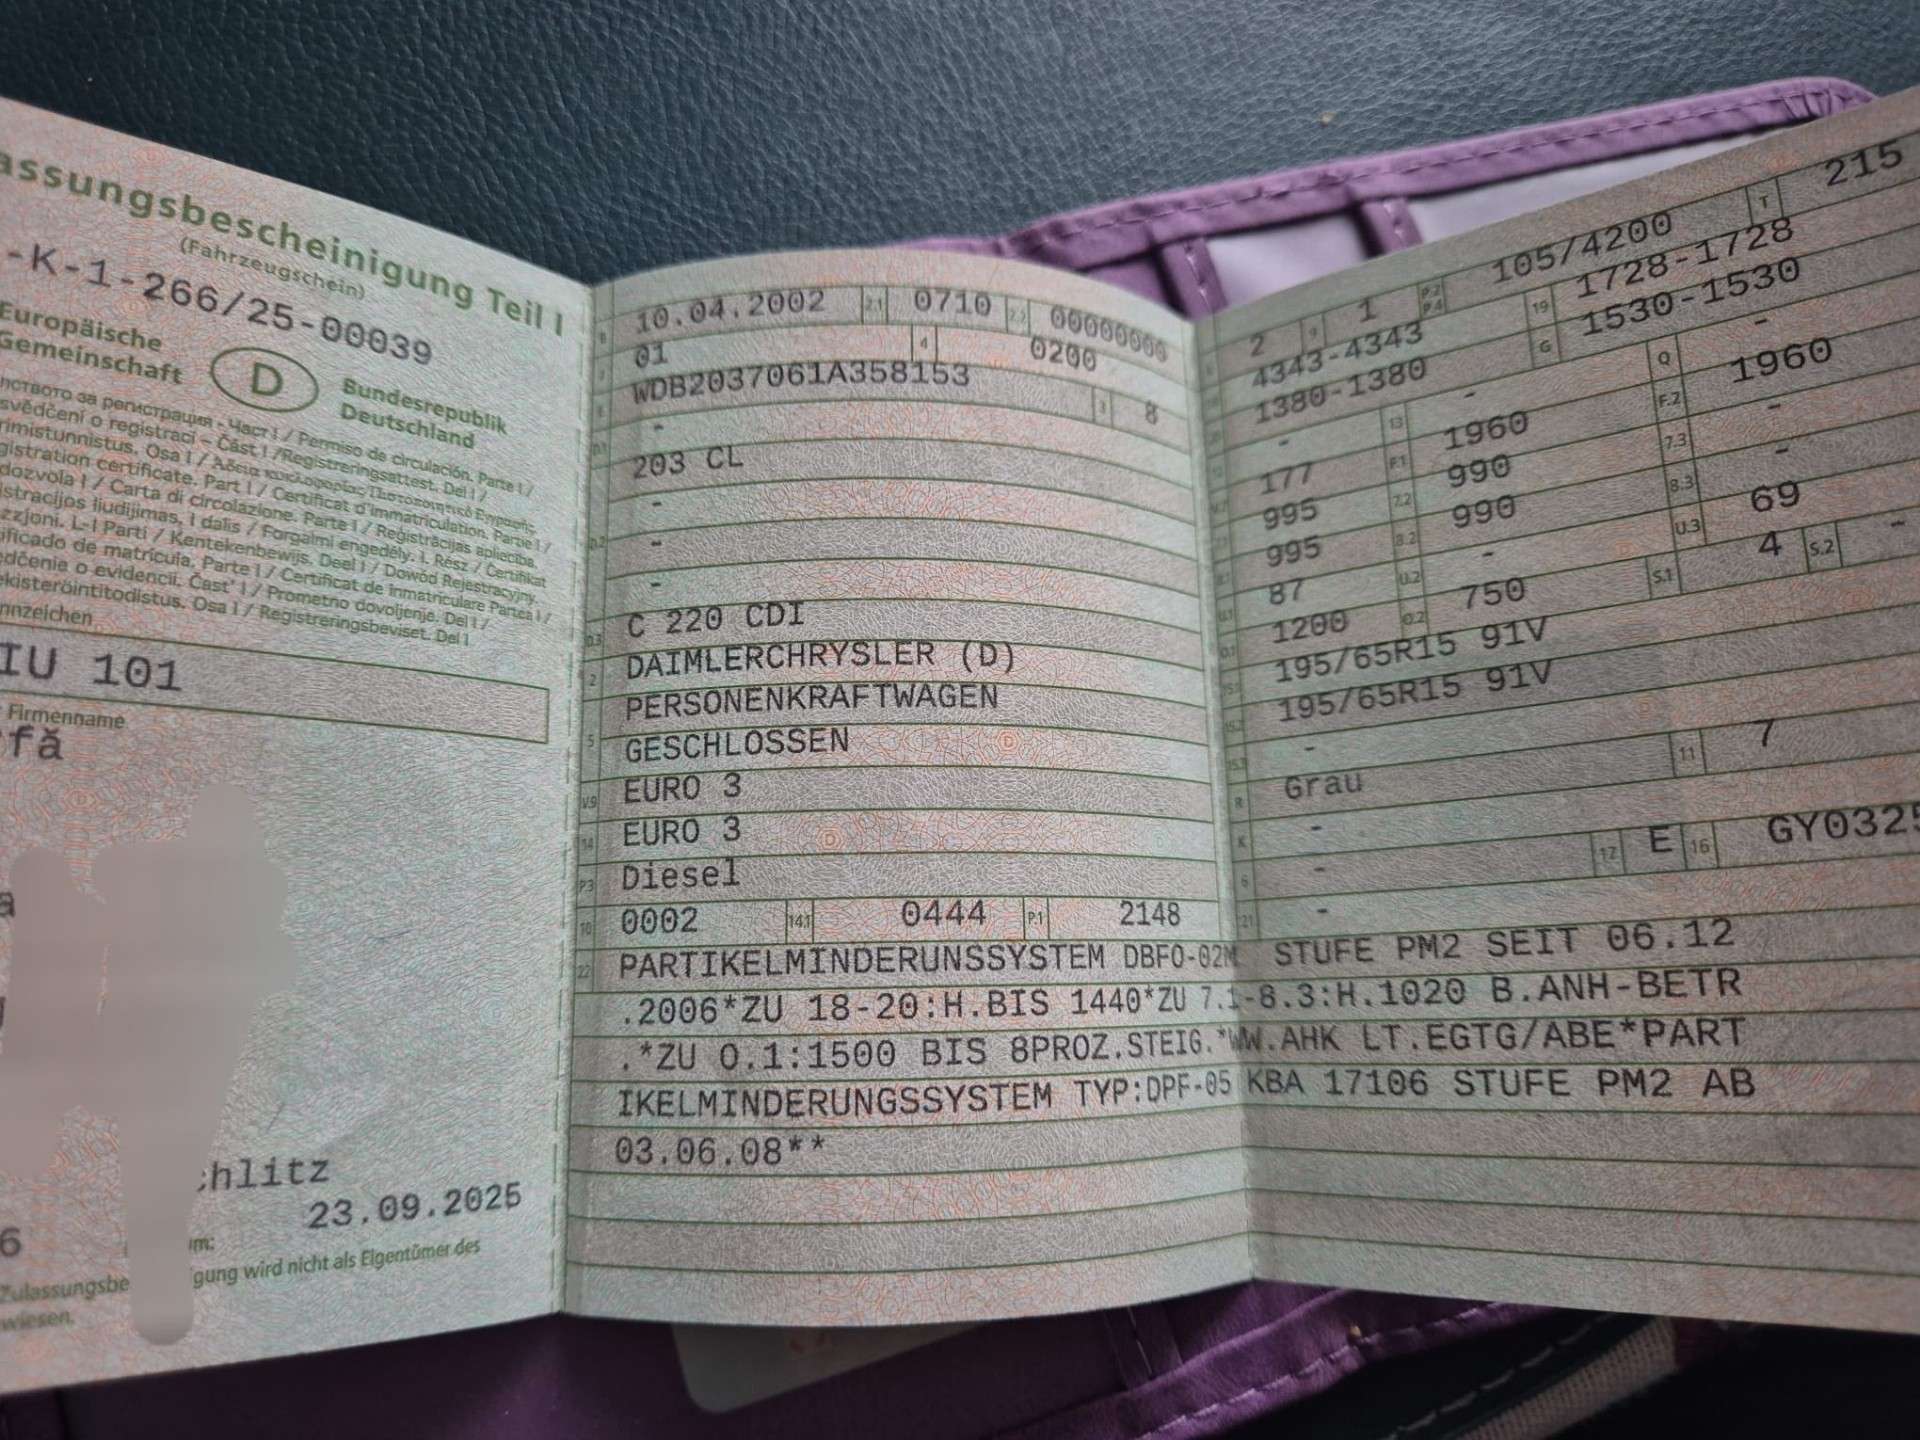 assungsbescheinigung Teil I
(Fahrzeugschein)
-K-1-266/25-00039
Europäische
Gemeinschaft
D
Bundesrepublik
Deutschland
за регистрация - Част I / Permiso de circulación. Parte I /
svědčení o registraci – Část I / Registreringsattest. Del I /
rimistunnistus. Osa I /
gistration certificate. Part I / Certificat d'immatriculation. Partie I /
dozvola I / Carta di circolazione. Parte I / Reģistrācijas apliecība.
stracijos liudijimas, I dalis / Forgalmi engedély. I. Rész / Ċertifikat
zzjoni. L-I Parti / Kentekenbewijs. Deel I / Dowód Rejestracyjny.
ificado de matrícula. Parte I / Certificat de înmatriculare Partea I /
dčenie o evidencii. Časť I / Prometno dovoljenje. Del I /
ekisteröintitodistus. Osa I / Registreringsbeviset. Del I
nnzeichen
IU 101
Firmenname
fă
a
chlitz
23.09.2025
6
um:
Zulassungsbe gung wird nicht als Eigentümer des
wiesen.
B 10.04.2002 2.1 0710 2.2 00000000
01 4 0200
E WDB2037061A358153 3 8
D.1 -
203 CL
-
D.2 -
-
D.3 C 220 CDI
2 DAIMLERCHRYSLER (D)
PERSONENKRAFTWAGEN
5 GESCHLOSSEN
V.9 EURO 3
14 EURO 3
P.3 Diesel
10 0002 14.1 0444 P.1 2148
22 PARTIKELMINDERUNSSYSTEM DBFO-02M STUFE PM2 SEIT 06.12
.2006*ZU 18-20:H.BIS 1440*ZU 7.1-8.3:H.1020 B.ANH-BETR
.*ZU O.1:1500 BIS 8PROZ.STEIG.*WW.AHK LT.EGTG/ABE*PART
IKELMINDERUNGSSYSTEM TYP:DPF-05 KBA 17106 STUFE PM2 AB
03.06.08**
2 9 1 P.2 P.4 105/4200 T 215
4343-4343 19 1728-1728
1380-1380 G 1530-1530
- 13 - Q -
177 F.1 1960 F.2 1960
995 7.2 990 7.3 -
995 8.2 990 8.3 -
87 U.2 - U.3 69
1200 O.2 750 S.1 4 S.2 -
195/65R15 91V
195/65R15 91V
-
R Grau 11 7
K -
6 - 17 E 16 GY0325
21 -